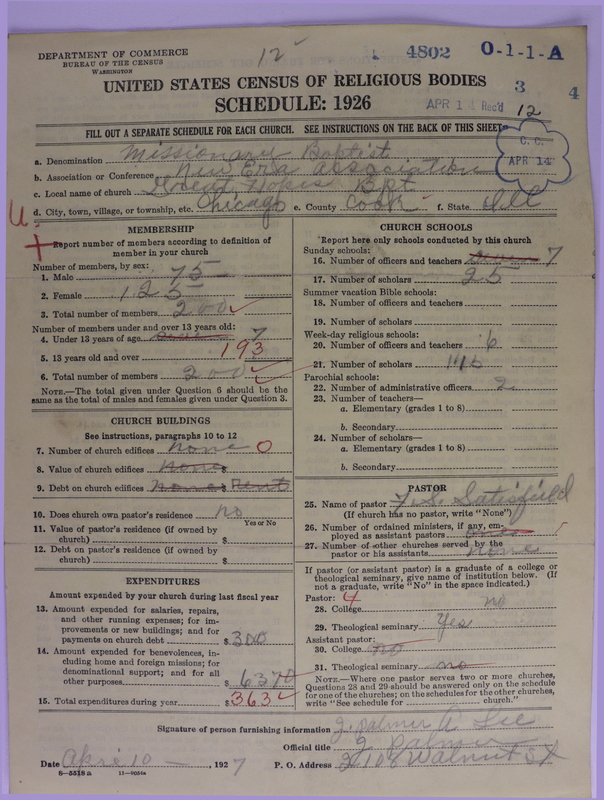 DEPARTMENT OF COMMERCE
BUREAU OF THE CENSUS
WASHINGTON
12
4802
0-1-1-A
UNITED STATES CENSUS OF RELIGIOUS BODIES
SCHEDULE: 1926
APR 14 Rec'd
3 4
12
FILL OUT A SEPARATE SCHEDULE FOR EACH CHURCH. SEE INSTRUCTIONS ON THE BACK OF THIS SHEET
C. C.
APR 14
a. Denomination Missionary Baptist
b. Association or Conference New Era Association
c. Local name of church Bpt
d. City, town, village, or township, etc. Chicago e. County Cook f. State Ill
MEMBERSHIP
Report number of members according to definition of
member in your church
Number of members, by sex:
1. Male 75
2. Female 125
3. Total number of members 200
Number of members under and over 13 years old:
4. Under 13 years of age 7
5. 13 years old and over 193
6. Total number of members 200
NOTE.—The total given under Question 6 should be the
same as the total of males and females given under Question 3.
CHURCH BUILDINGS
See instructions, paragraphs 10 to 12
7. Number of church edifices none 0
8. Value of church edifices none
9. Debt on church edifices none Rent
10. Does church own pastor's residence? no
Yes or No
11. Value of pastor's residence (if owned by
church) $
12. Debt on pastor's residence (if owned by
church) $
EXPENDITURES
Amount expended by your church during last fiscal year
13. Amount expended for salaries, repairs,
and other running expenses; for im-
provements or new buildings; and for
payments on church debt $300
14. Amount expended for benevolences, in-
cluding home and foreign missions; for
denominational support; and for all
other purposes $
15. Total expenditures during year $363
CHURCH SCHOOLS
Report here only schools conducted by this church
Sunday schools:
16. Number of officers and teachers seven 7
17. Number of scholars 25
Summer vacation Bible schools:
18. Number of officers and teachers
19. Number of scholars
Week-day religious schools:
20. Number of officers and teachers 6
21. Number of scholars
Parochial schools:
22. Number of administrative officers 2
23. Number of teachers—
a. Elementary (grades 1 to 8)
b. Secondary
24. Number of scholars—
a. Elementary (grades 1 to 8)
b. Secondary
PASTOR
25. Name of pastor
(If church has no pastor, write "None")
26. Number of ordained ministers, if any, em-
ployed as assistant pastors
27. Number of other churches served by the
pastor or his assistants none
If pastor (or assistant pastor) is a graduate of a college or
theological seminary, give name of institution below. (If
not a graduate, write "No" in the space indicated.)
Pastor: 4
28. College no
29. Theological seminary Yes
Assistant pastor:
30. College no
31. Theological seminary no
NOTE.—Where one pastor serves two or more churches,
Questions 28 and 29 should be answered only on the schedule
for one of the churches; on the schedules for the other churches,
write "See schedule for church."
Signature of person furnishing information J. Palmer A Lee
Official title J Palmer
Date Apr 10, 1927 P. O. Address 2108 Walnut St
8-5518 a